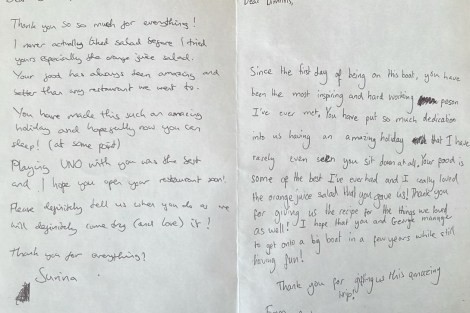 Thank you so so much for everything!
I never actually liked salad before I tried
yours especially the orange juice salad.
Your food has always been amazing and
better than any restaurant we went to.
You have made this such an amazing
holiday and hopefully now you can
sleep! (at some point)
Playing UNO with you was the best
and I hope you open your restaurant soon!
Please definitely tell us when you do as we
will definitely come try (and love) it!
Thank you for everything!
Surina
Dear
Since the first day of being on this boat, you have
been the most inspiring and hard working person
I've ever met. You have put so much dedication
into us having an amazing holiday that I have
rarely even seen you sit down at all. Your food is
some of the best I've ever had and I really loved
the orange juice salad that you gave us! Thank you
for giving us the recipe for the things we loved
as well! I hope that you and George manage
to get onto a big boat in a few years while still
having fun!
Thank you for giving us this amazing
trip!